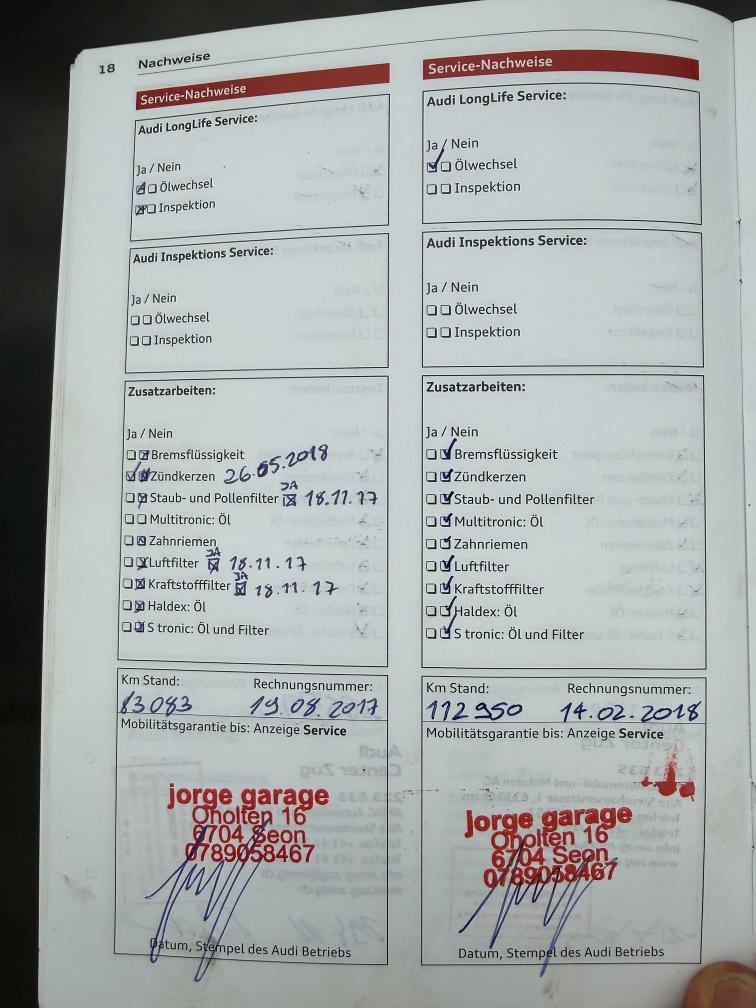 18 Nachweise
Service-Nachweise
Audi LongLife Service:
Ja / Nein
Ölwechsel
Inspektion
Audi Inspektions Service:
Ja / Nein
Ölwechsel
Inspektion
Zusatzarbeiten:
Ja / Nein
Bremsflüssigkeit
Zündkerzen 26.05.2018
Staub- und Pollenfilter JA 18.11.17
Multitronic: Öl
Zahnriemen
Luftfilter JA 18.11.17
Kraftstofffilter JA 18.11.17
Haldex: Öl
S tronic: Öl und Filter
Km Stand: Rechnungsnummer:
83083 19.08.2017
Mobilitätsgarantie bis: Anzeige Service
jorge garage
Oholten 16
6704 Seon
0789058467
Datum, Stempel des Audi Betriebs
Service-Nachweise
Audi LongLife Service:
Ja / Nein
Ölwechsel
Inspektion
Audi Inspektions Service:
Ja / Nein
Ölwechsel
Inspektion
Zusatzarbeiten:
Ja / Nein
Bremsflüssigkeit
Zündkerzen
Staub- und Pollenfilter
Multitronic: Öl
Zahnriemen
Luftfilter
Kraftstofffilter
Haldex: Öl
S tronic: Öl und Filter
Km Stand: Rechnungsnummer:
112950 14.02.2018
Mobilitätsgarantie bis: Anzeige Service
jorge garage
Oholten 16
6704 Seon
0789058467
Datum, Stempel des Audi Betriebs